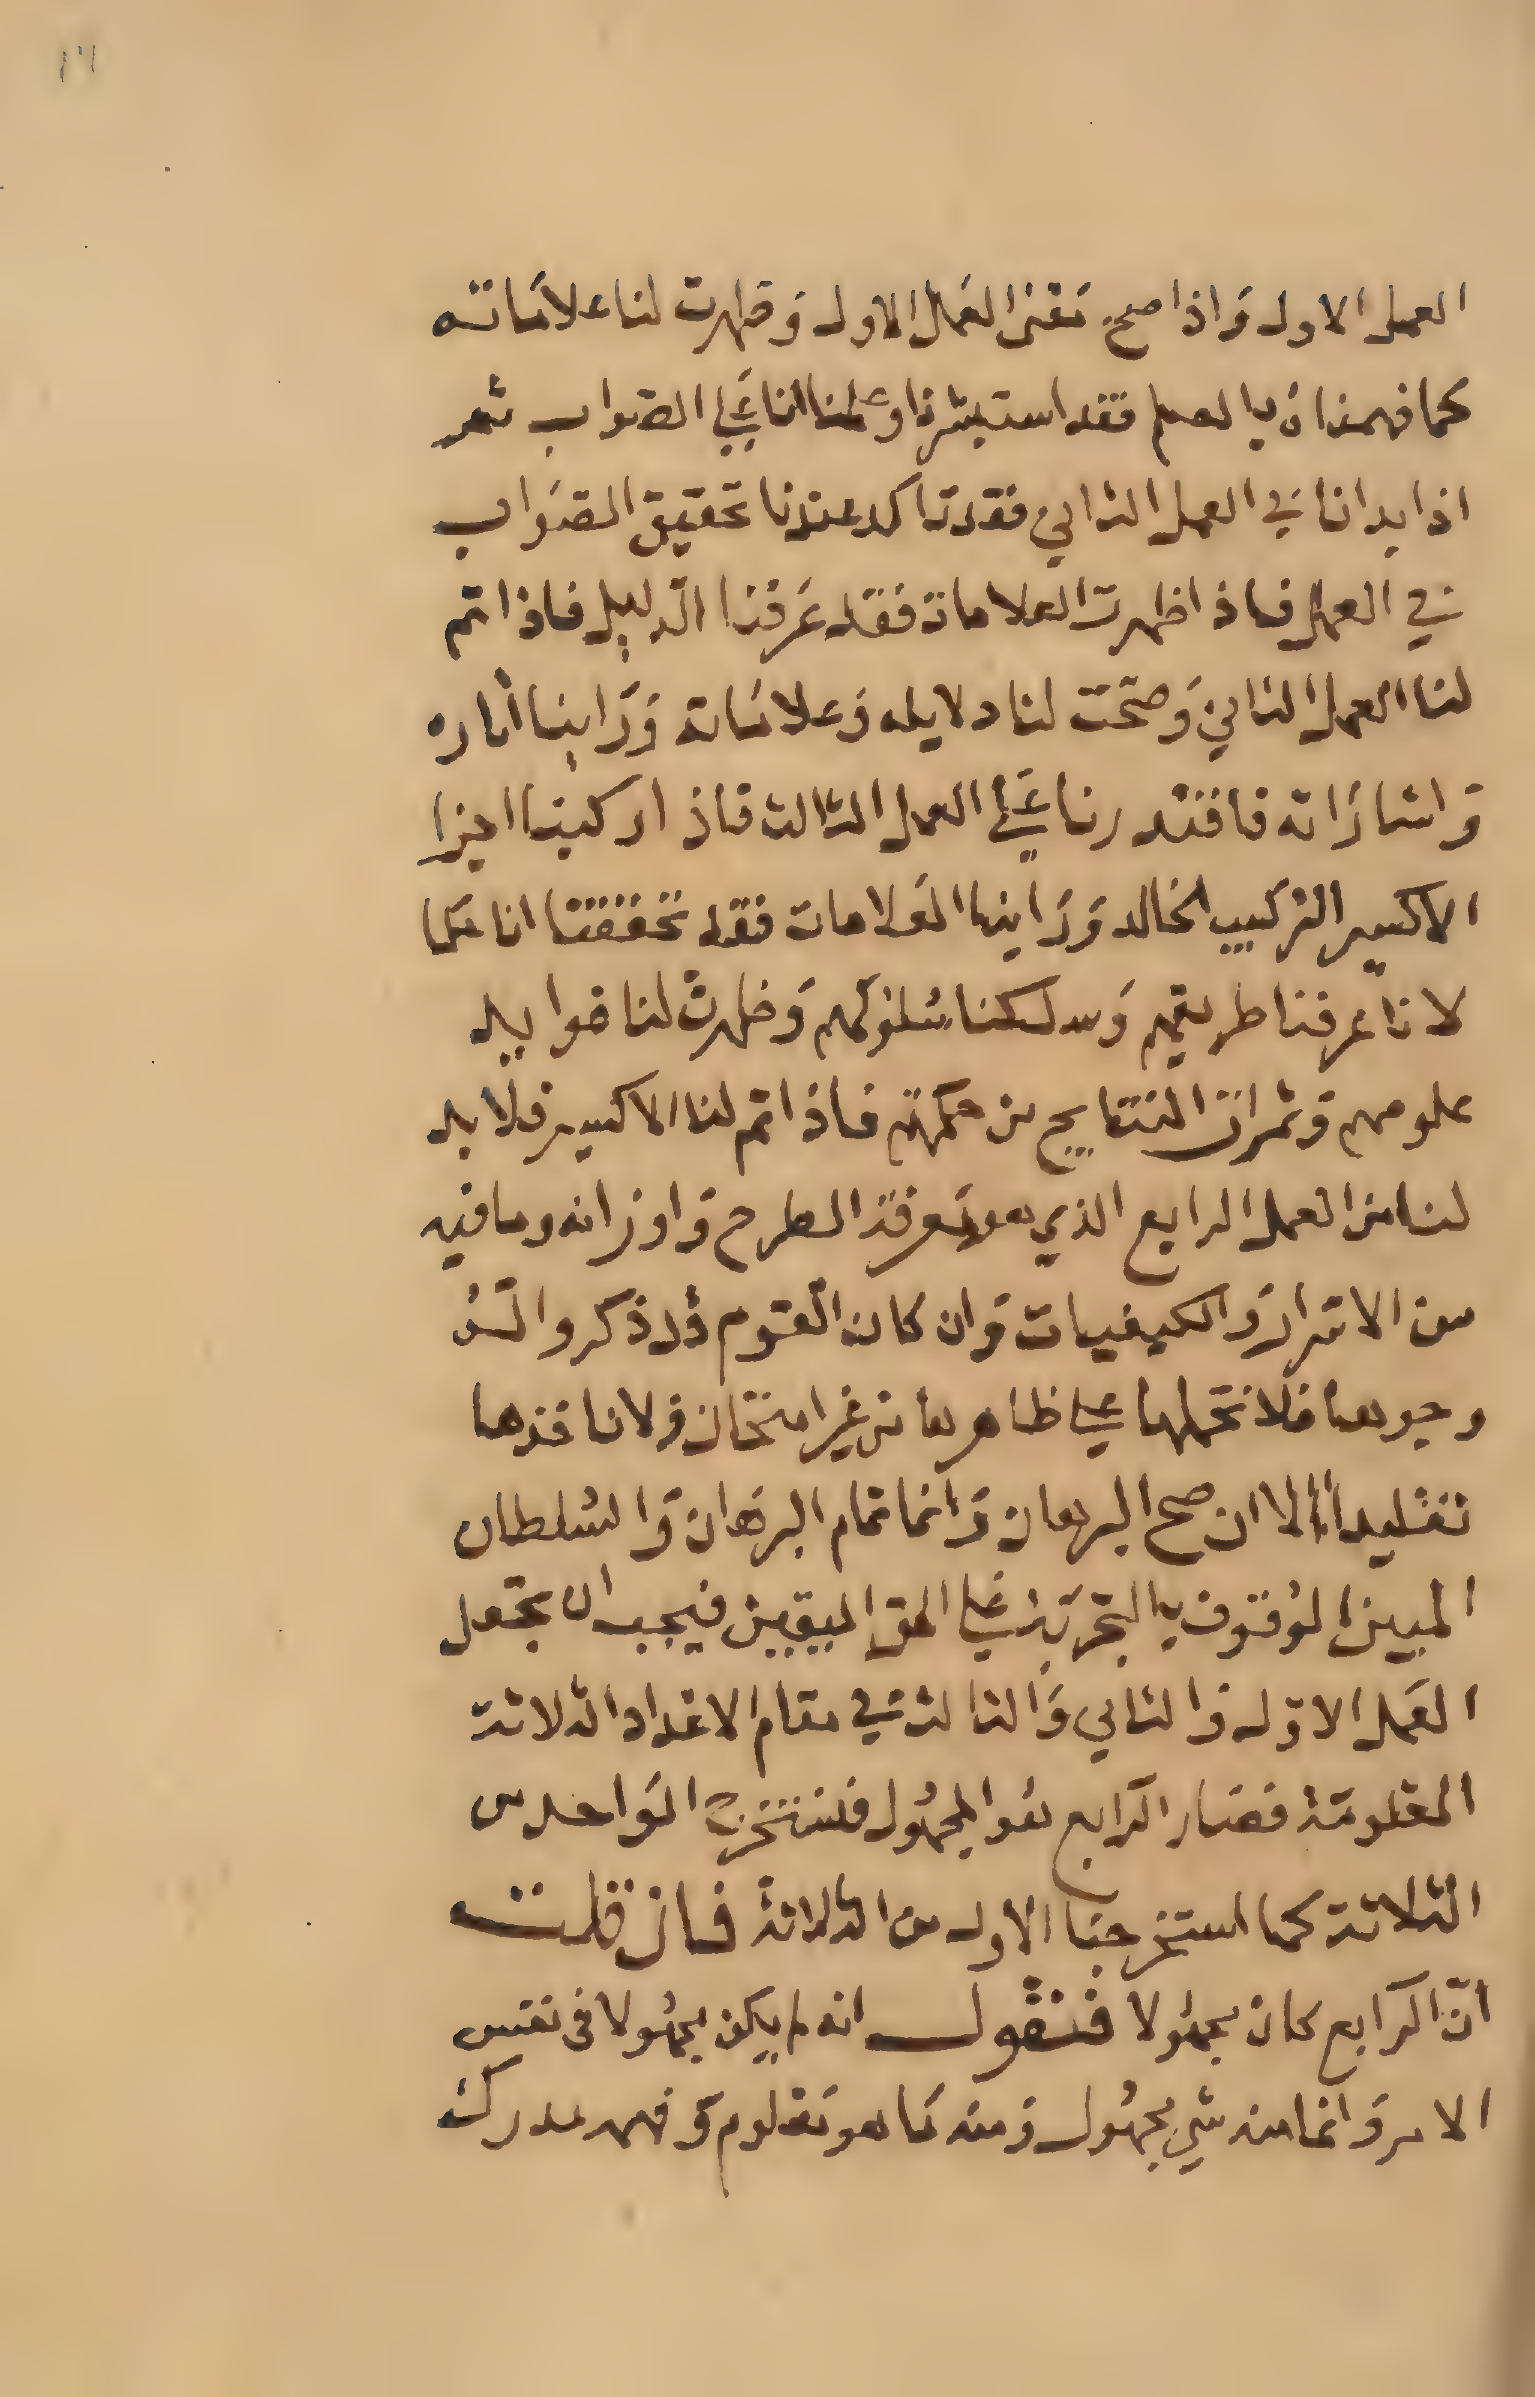 العمل الاول وَاذا صحّ مَعْنَى العَمل الاول وَظهرت لنا علامَاته
كما فهمناه بالعلم فقد استبشرنا وعلمنا اننا عَلى الصَواب ثم
اذا بدانا في العمل الثاني فقد تاكد عندنا تحقيق الصَواب
في العمل فاذا ظهرت العلامات فقد عَرفنا الدليل فاذا تم
لنا العمل الثاني وَصحّت لنا دلايله وَعلامَاته وَرَاينا اثاره
وَاشارَاته فاقتدرنا عَلى العمل الثالث فاذا ركبنا اجزا
الاكسير التركيب الخالد وَرَاينا العَلامات فقد تحققنا انا حكما
لانا عرفنا طريقهم وَسلكنا سُلوكهم وَظهرت لنا فوايد
علومهم وَثمرات النتايج من حكمتهم فاذا تم لنا الاكسير فلا بد
لنا من العمل الرابع الذي هو مَعرفة الطرح وَاوزانه وما فيه
من الاسرار وَالكيفيات وَان كان القوم قد ذكروا لنا
وجوها فلا نحملها على ظاهرها من غير امتحان وَلا ناخذها
تقليدا الا ان صح البرهان وَانما تمام البرهَان وَالسُلطان
المبين الوُقوف بالتجربَة عَلى الحق اليقين فيجب ان نجعل
العَمل الاوّل وَالثاني وَالثالث في مقام الاعداد الثلاثة
المعْلومَة فصَار الرَابع هُو المجهُول فنستخرج الوَاحد من
الثلاثة كما استخرجنا الاول من الثلاثة فان قلت
انّ الرَابع كان مجهُولا فنقول انه لم يكن مجهُولا في نفس
الامر وَانما منه شي مجهُول وَمنه مَا هو مَعْلوم وَفهمه مدرك